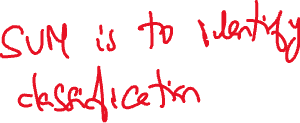 SVM is to identify
classification